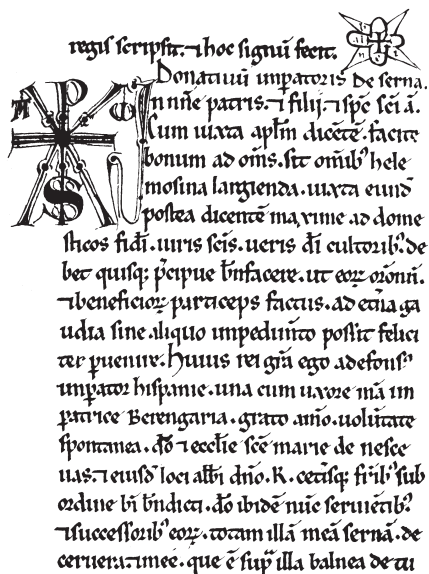 regis scripsit. ⁊ hoc signū fecit.
Donatiuū inp̄atoris De serna.
In nn̄e patris. ⁊ filij. ⁊ sp̄c sc̄i ā.
Cum iuxta ap̄lm dicētē. facite
bonum ad om̄s. sit om̄ib' hele
mosina largienda. iuxta eiusd̄
postea dicentē maxime ad dome
sticos fidī. uiris sc̄is. ueris dī cultorib'. de
bet quisq; p̄cipue bn̄facere. ut eoꝝ orōnū.
⁊ beneficioꝝ particeps factus. ad et̄na ga
udia sine aliquo impedim̄to possit felici
ter ꝑuenire. Huius rei gr̄a ego adefons'
imp̄ator hispanie. una cum uxore mā im
ꝑatrice Berengaria. grato aīo. uolūtate
spontanea. dō ⁊ eccl̄ie sc̄e marie de niesce
uas. ⁊ eiusd̄ loci abb̄i dn̄o. K. cet̄isq; fr̄ib' sub
ordine bī bn̄dicti. dō ibidē nūc seruiētib'.
⁊ successorib' eoꝝ. totam illā meā sernā. de
ceruera. ⁊ mee. que ē sup̄ illa balnea de tu